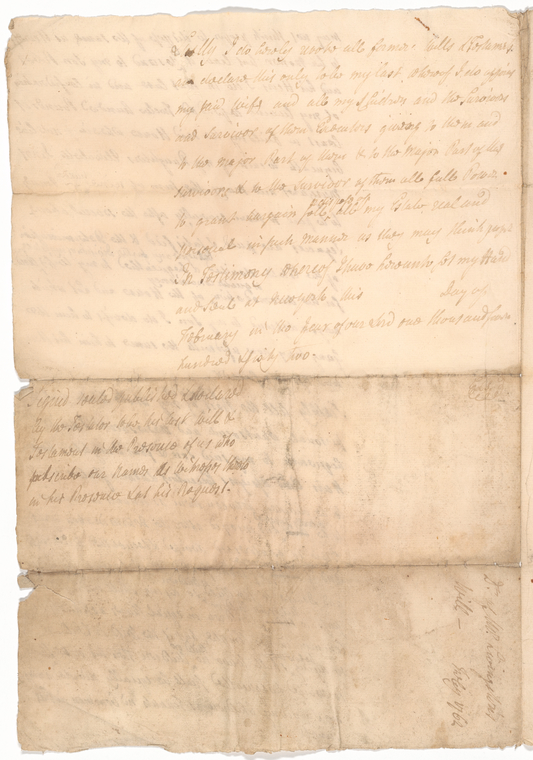 Lastly I do hereby revoke all former Wills & Testaments
& declare this only to be my last, whereof I do appoint
my said Wife and all my Children and the Survivors
and Survivor of them Executors giving to them and
to the Major Part of them & to the Major Part of the
Survivors & to the Survivor of them all full Power
to grant bargain sell all my Estate real and
personal in such manner as they may think proper
In Testimony whereof I have hereunto set my Hand
and Seal at New York this Day of
February in the year of our Lord one thousand seven
hundred & sixty two.
Signed sealed published & declared
by the Testator to be his last Will &
Testament in the Presence of us who
subscribe our Names as Witnesses thereto
in his Presence & at his Request.
Dr. of Mr. Livingston's
Will - Feby 1762